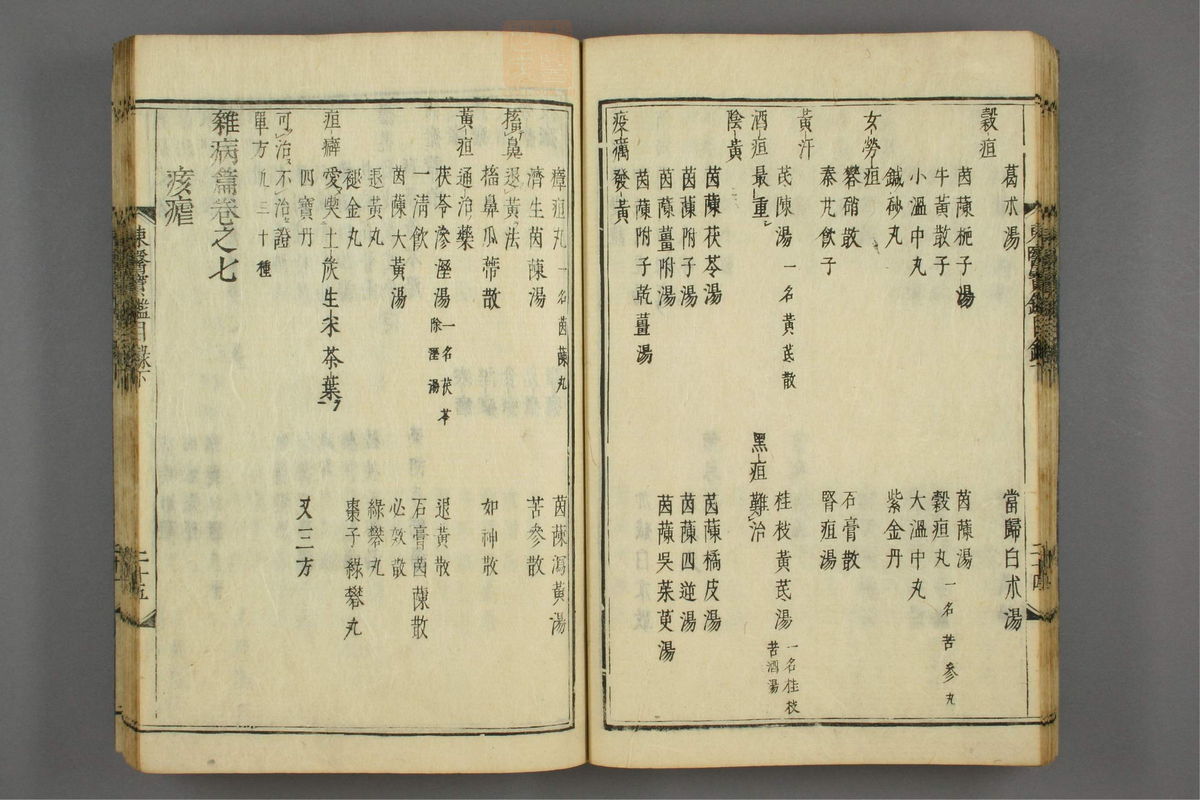 葛朮湯 當歸白朮湯
穀疸
茵蔯梔子湯 茵蔯湯
牛黃散子 穀疸丸 一名苦參丸
小溫中丸 大溫中丸
鍼砂丸 紫金丹
女勞疸
礬硝散 石膏散
秦艽飮子 腎疸湯
黃汗
芪陳湯 一名黃芪散 桂枝黃芪湯 一名桂枝苦酒湯
酒疸最重 黑疸難治
陰黃
茵蔯茯苓湯 茵蔯橘皮湯
茵蔯附子湯 茵蔯四逆湯
茵蔯薑附湯 茵蔯吳茱萸湯
茵蔯附子乾薑湯
疫癘發黃
瘴疸丸 一名茵蔯丸 茵蔯瀉黃湯
濟生茵蔯湯 苦參散
搐鼻退黃法
搐鼻瓜蒂散 如神散
黃疸通治藥
茯苓滲溼湯 一名茯苓除溼湯 退黃散
一淸飮 石膏茵蔯散
茵蔯大黃湯 必效散
退黃丸 綠礬丸
褪金丸 棗子綠礬丸
疸癖愛喫土炭生米茶葉ヲ
四寶丹 又三方
可治不治證
單方九三十種
雜病篇卷之七
痎瘧
東醫寶鑑目錄下
二十五